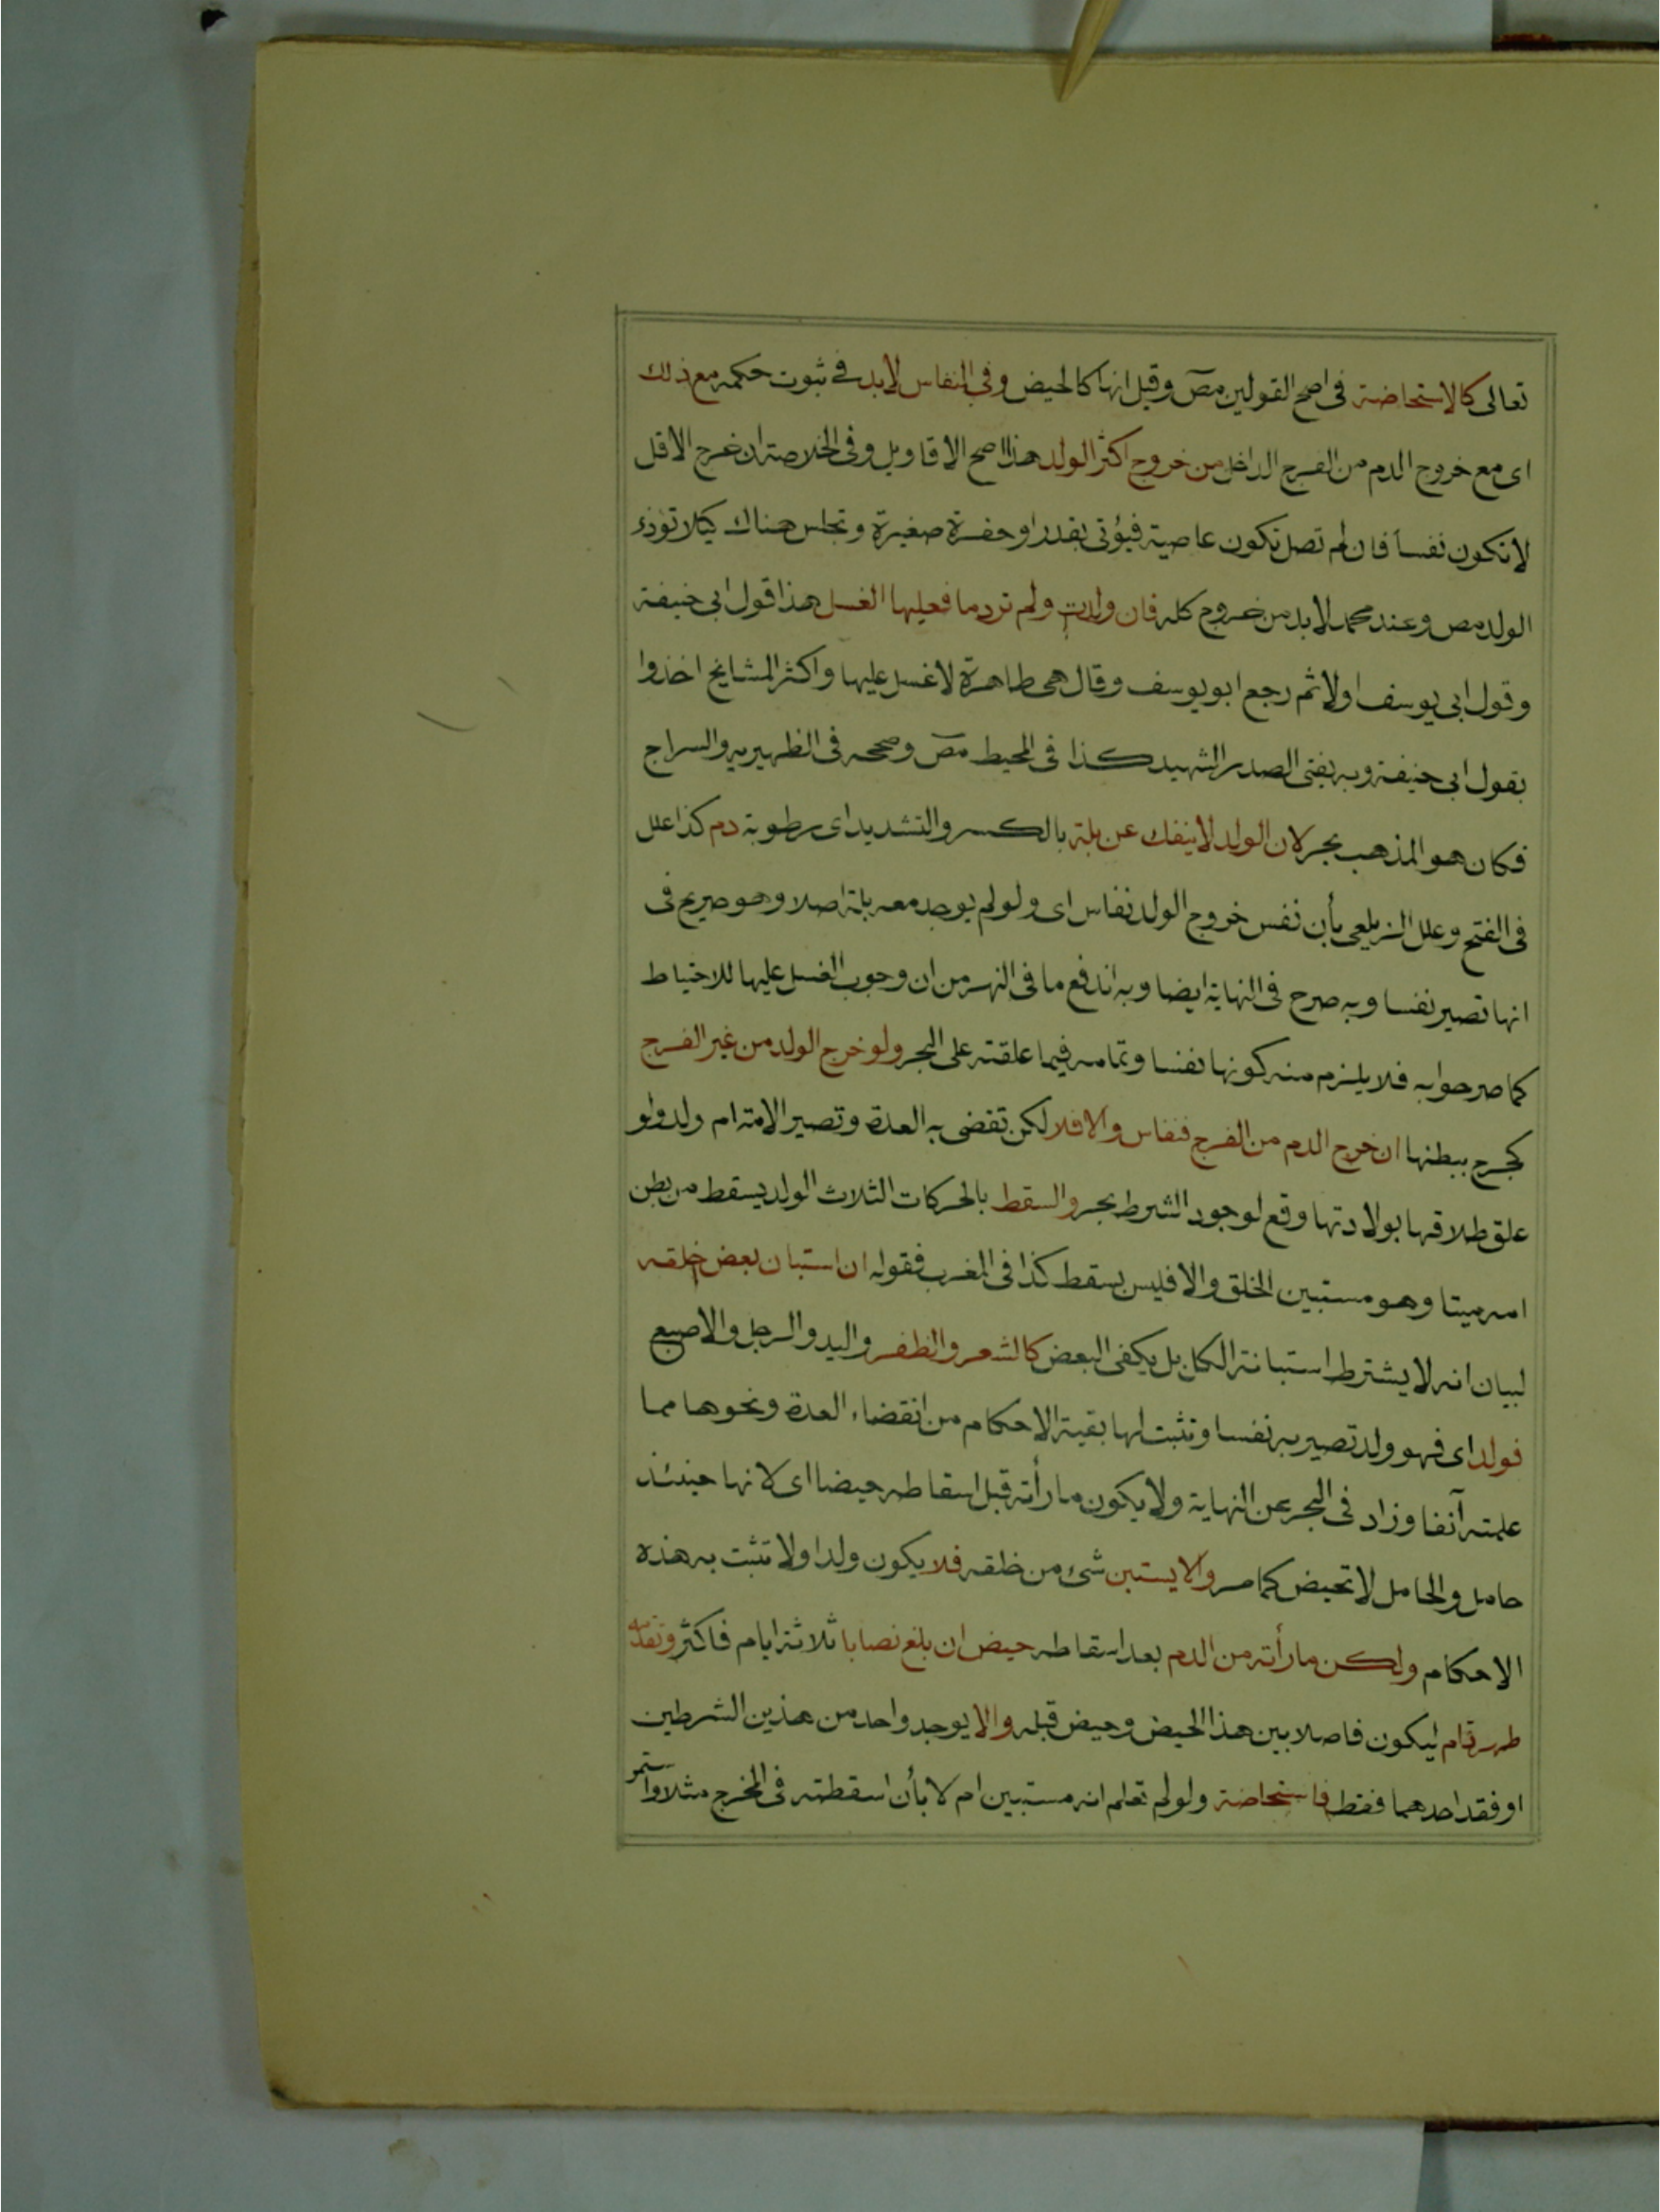 تعالى كالاستحاضة فى اصح القولين مص وقيل انها كالحيض وفى النفاس لابد فى ثبوت حكمه مع ذلك
اى مع خروج الدم من الفرج الداخل من خروج اكثر الولد هذا اصح الاقاويل وفى الخلاصة ان خرج الاقل
لا تكون نفسا فان لم تصل تكون عاصية فيؤتى بقدر او حفرة صغيرة وتجلس هناك كيلا تؤذء
الولد مص وعند محمد لابد من خروج كله فان ولدت ولم تر دما فعليها الغسل هذا قول ابى حنيفة
وقول ابى يوسف اولا ثم رجع ابو يوسف وقال هى طاهرة لا غسل عليها واكثر المشايخ اخذوا
بقول ابى حنيفة وبه يفتى الصدر الشهيد كذا فى المحيط مص وصححه فى الظهيريه والسراج
فكان هو المذهب بحر لان الولد لا ينفك عن بلة بالكسر والتشديد اى رطوبة دم كذا علل
فى الفتح وعلل الزيلعى بأن نفس خروج الولد نفاس اى ولو لم يوجد معه بلة اصلا وهو صريح فى
انها تصير نفسا وبه صرح فى النهاية ايضا وبه اندفع ما فى النهر من ان وجوب الغسل عليها للاحتياط
كما صرحوا به فلا يلزم منه كونها نفسا وتمامه فيما علقته على البحر ولو خرج الولد من غير الفرج
كجرح ببطنها ان خرج الدم من الفرج فنفاس والا فلا لكن تقضى به العدة وتصير الامة ام ولد ولو
علق طلاقها بولادتها وقع لوجود الشرط بحر والسقط بالحركات الثلاث الولد يسقط من بطن
امه ميتا وهو مستبين الخلق والا فليس بسقط كذا فى المغرب فقوله ان استبان بعض خلقه
لبيان انه لا يشترط استبانة الكل بل يكفى البعض كالشعر والظفر واليد والرجل والاصبع
فولد اى فهو ولد تصير به نفسا وتثبت لها بقية الاحكام من انقضاء العدة ونحوها مما
علمته آنفا وزاد فى البحر عن النهاية ولا يكون ما رأته قبل اسقاطه حيضا اى لانها حينئذ
حامل والحامل لا تحيض كما مر والا يستبن شئ من خلقه فلا يكون ولدا ولا تثبت به هذه
الاحكام ولكن ما رأته من الدم بعد اسقاطه حيض ان بلغ نصابا ثلاثة ايام فاكثر وتقدمه
طهر تام ليكون فاصلا بين هذا الحيض وحيض قبله والا يوجد واحد من هذين الشرطين
او فقد احدهما فقط فاستحاضة ولو لم تعلم انه مستبين ام لا بأن اسقطته فى المخرج مثلا واستمر